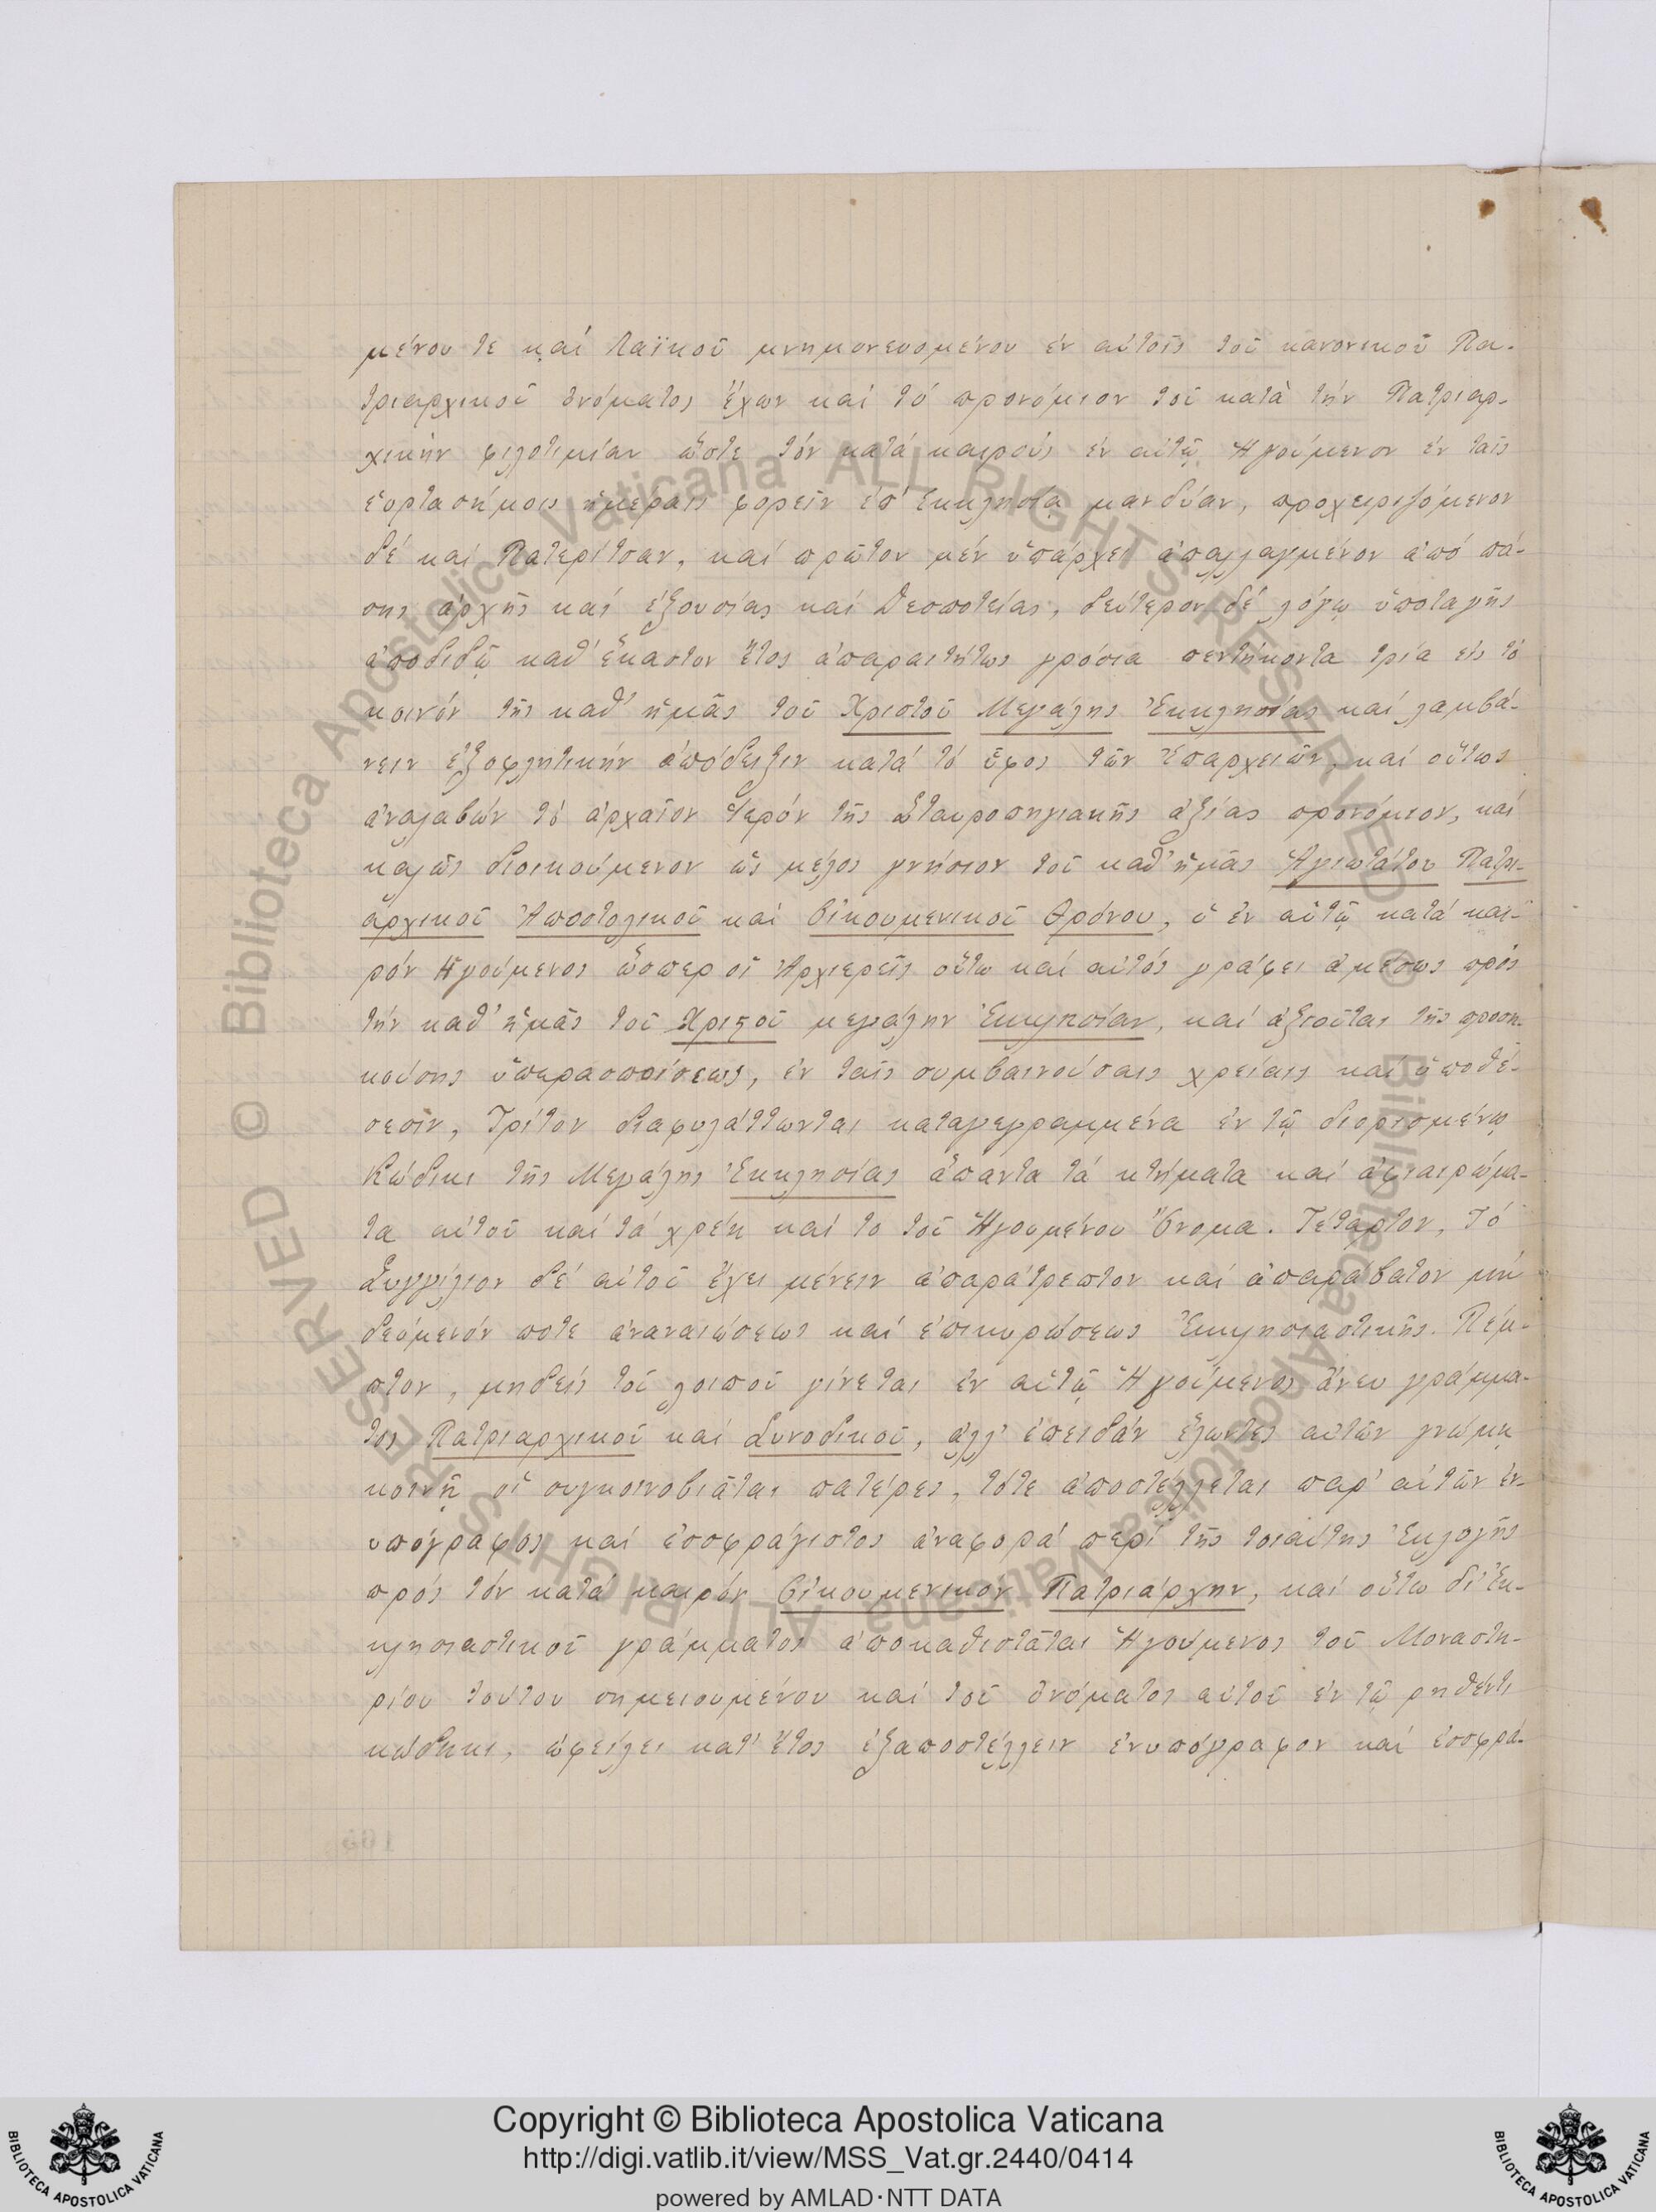 μένου τε καί λαϊκοῦ μνημονευομένου ἐν αὐτοῖς τοῦ κανονικοῦ Πα-
τριαρχικοῦ ὀνόματος ἔχων καί τό προνόμιον τοῦ κατὰ τήν Πατριαρ-
χικήν φιλοτιμίαν ὥστε τόν κατά καιρούς ἐν αὐτῷ Ἡγούμενον ἐν ταῖς
ἑορτασήμοις ἡμέραις φορεῖν ἐπ' Ἐκκλησίᾳ μανδύαν, προχειριζόμενον
δέ καί Πατερίτσαν, καί πρῶτον μέν ὑπάρχει ἀπαλλαγμένον ἀπό πά-
σης ἀρχῆς καί ἐξουσίας καί Δεσποτείας, δεύτερον δέ λόγῳ ὑποταγῆς
ἀποδιδῷ καθ' ἕκαστον ἔτος ἀπαραιτήτως γρόσια πεντήκοντα τρία εἰς τό
κοινόν τῆς καθ' ἡμᾶς τοῦ Χριστοῦ Μεγάλης Ἐκκλησίας καί λαμβά-
νειν ἐξοφλητικήν ἀπόδειξιν κατά τό ὕφος τῶν Ἐπαρχειῶν, καί οὕτως
ἀναλαβών τό ἀρχαῖον Ἱερόν τῆς Σταυροπηγιακῆς ἀξίας προνόμιον, καί
καλῶς διοικούμενον ὡς μέλος γνήσιον τοῦ καθ' ἡμᾶς Ἁγιωτάτου Πατρι-
αρχικοῦ Ἀποστολικοῦ καί Οἰκουμενικοῦ Θρόνου, ὁ ἐν αὐτῷ κατά και-
ρόν Ἡγούμενος ὥσπερ οἱ Ἀρχιερεῖς οὕτω καί αὐτός γράφει ἀμέσως πρός
τήν καθ' ἡμᾶς τοῦ Χριςοῦ μεγάλην Ἐκκλησίαν, καί ἀξιοῦται τῆς προση-
κούσης ὑπερασπίσεως, ἐν ταῖς συμβαινούσαις χρείαις καί ὑποθέ-
σεσιν, Τρίτον διαφυλάττωνται καταγεγραμμένα ἐν τῷ διορισμένῳ
Κώδικι τῆς Μεγάλης Ἐκκλησίας ἅπαντα τά κτήματα καί ἀφιαιρώμα-
τα αὐτοῦ καί τά χρέη καί το τοῦ Ἡγουμένου Ὄνομα. Τέταρτον, τό
Συγγίλιον δέ αὐτοῦ ἔχει μένειν ἀπαράτρεπτον καί ἀπαράβατον μή
δεόμενόν ποτε ἀνανεώσεως καί ἐπικυρώσεως Ἐκκλησιαστικῆς. Πέμ-
πτον, μηδείς τοῦ λοιποῦ γίνεται ἐν αὐτῷ Ἡγούμενος ἄνευ γράμμα-
τος Πατριαρχικοῦ καί Συνοδικοῦ, ἀλλ' ἐπειδάν ἕλωντες αὐτῶν γνώμῃ
κοινῇ οἱ συγκοινοβιᾶται πατέρες, τότε ἀποστέλλεται παρ' αὐτῶν ἐν-
υπόγραφος καί ἐσφράγιστος ἀναφορά περί τῆς τοιαύτης Ἐκλογῆς
πρός τόν κατά καιρόν Οἰκουμενικον Πατριάρχην, καί οὕτω δι' Ἐκ-
κλησιαστικοῦ γράμματος ἀποκαθιστᾶται Ἡγούμενος τοῦ Μοναστη-
ρίου τούτου σημειουμένου καί τοῦ ὀνόματος αὐτοῦ ἐν τῷ ρηθέντι
κώδηκι, ὠφείλει κατ' ἔτος ἐξαποστέλλειν ἐνυπόγραφον καί ἐσσφρά-
Copyright © Biblioteca Apostolica Vaticana
http://digi.vatlib.it/view/MSS_Vat.gr.2440/0414
powered by AMLAD·NTT DATA